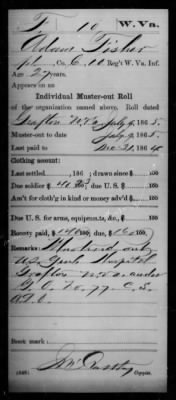 F. 10 W. Va.
Adam Fisher
Co. C, 10 Reg't W. Va. Inf.
Age 27 years.
Appears on an
Individual Muster-out Roll
of the organization named above. Roll dated
Grafton W. Va. July 9, 1865.
Muster-out to date July 9, 1865.
Last paid to Dec 31, 1864.
Clothing account:
Last settled, 186 ; drawn since $ 100
Due soldier $ ; due U. S. $ 100
Am't for cloth'g in kind or money adv'd $ 100
Due U. S. for arms, equipments, &c., $ 100
Bounty paid $ 100; due $ 100
Remarks: Mustered out
U.S. Genl. Hospital
Grafton W. Va. under
G.O. No. 77. C.S.
A.G.O.
Book mark:
Copyist.